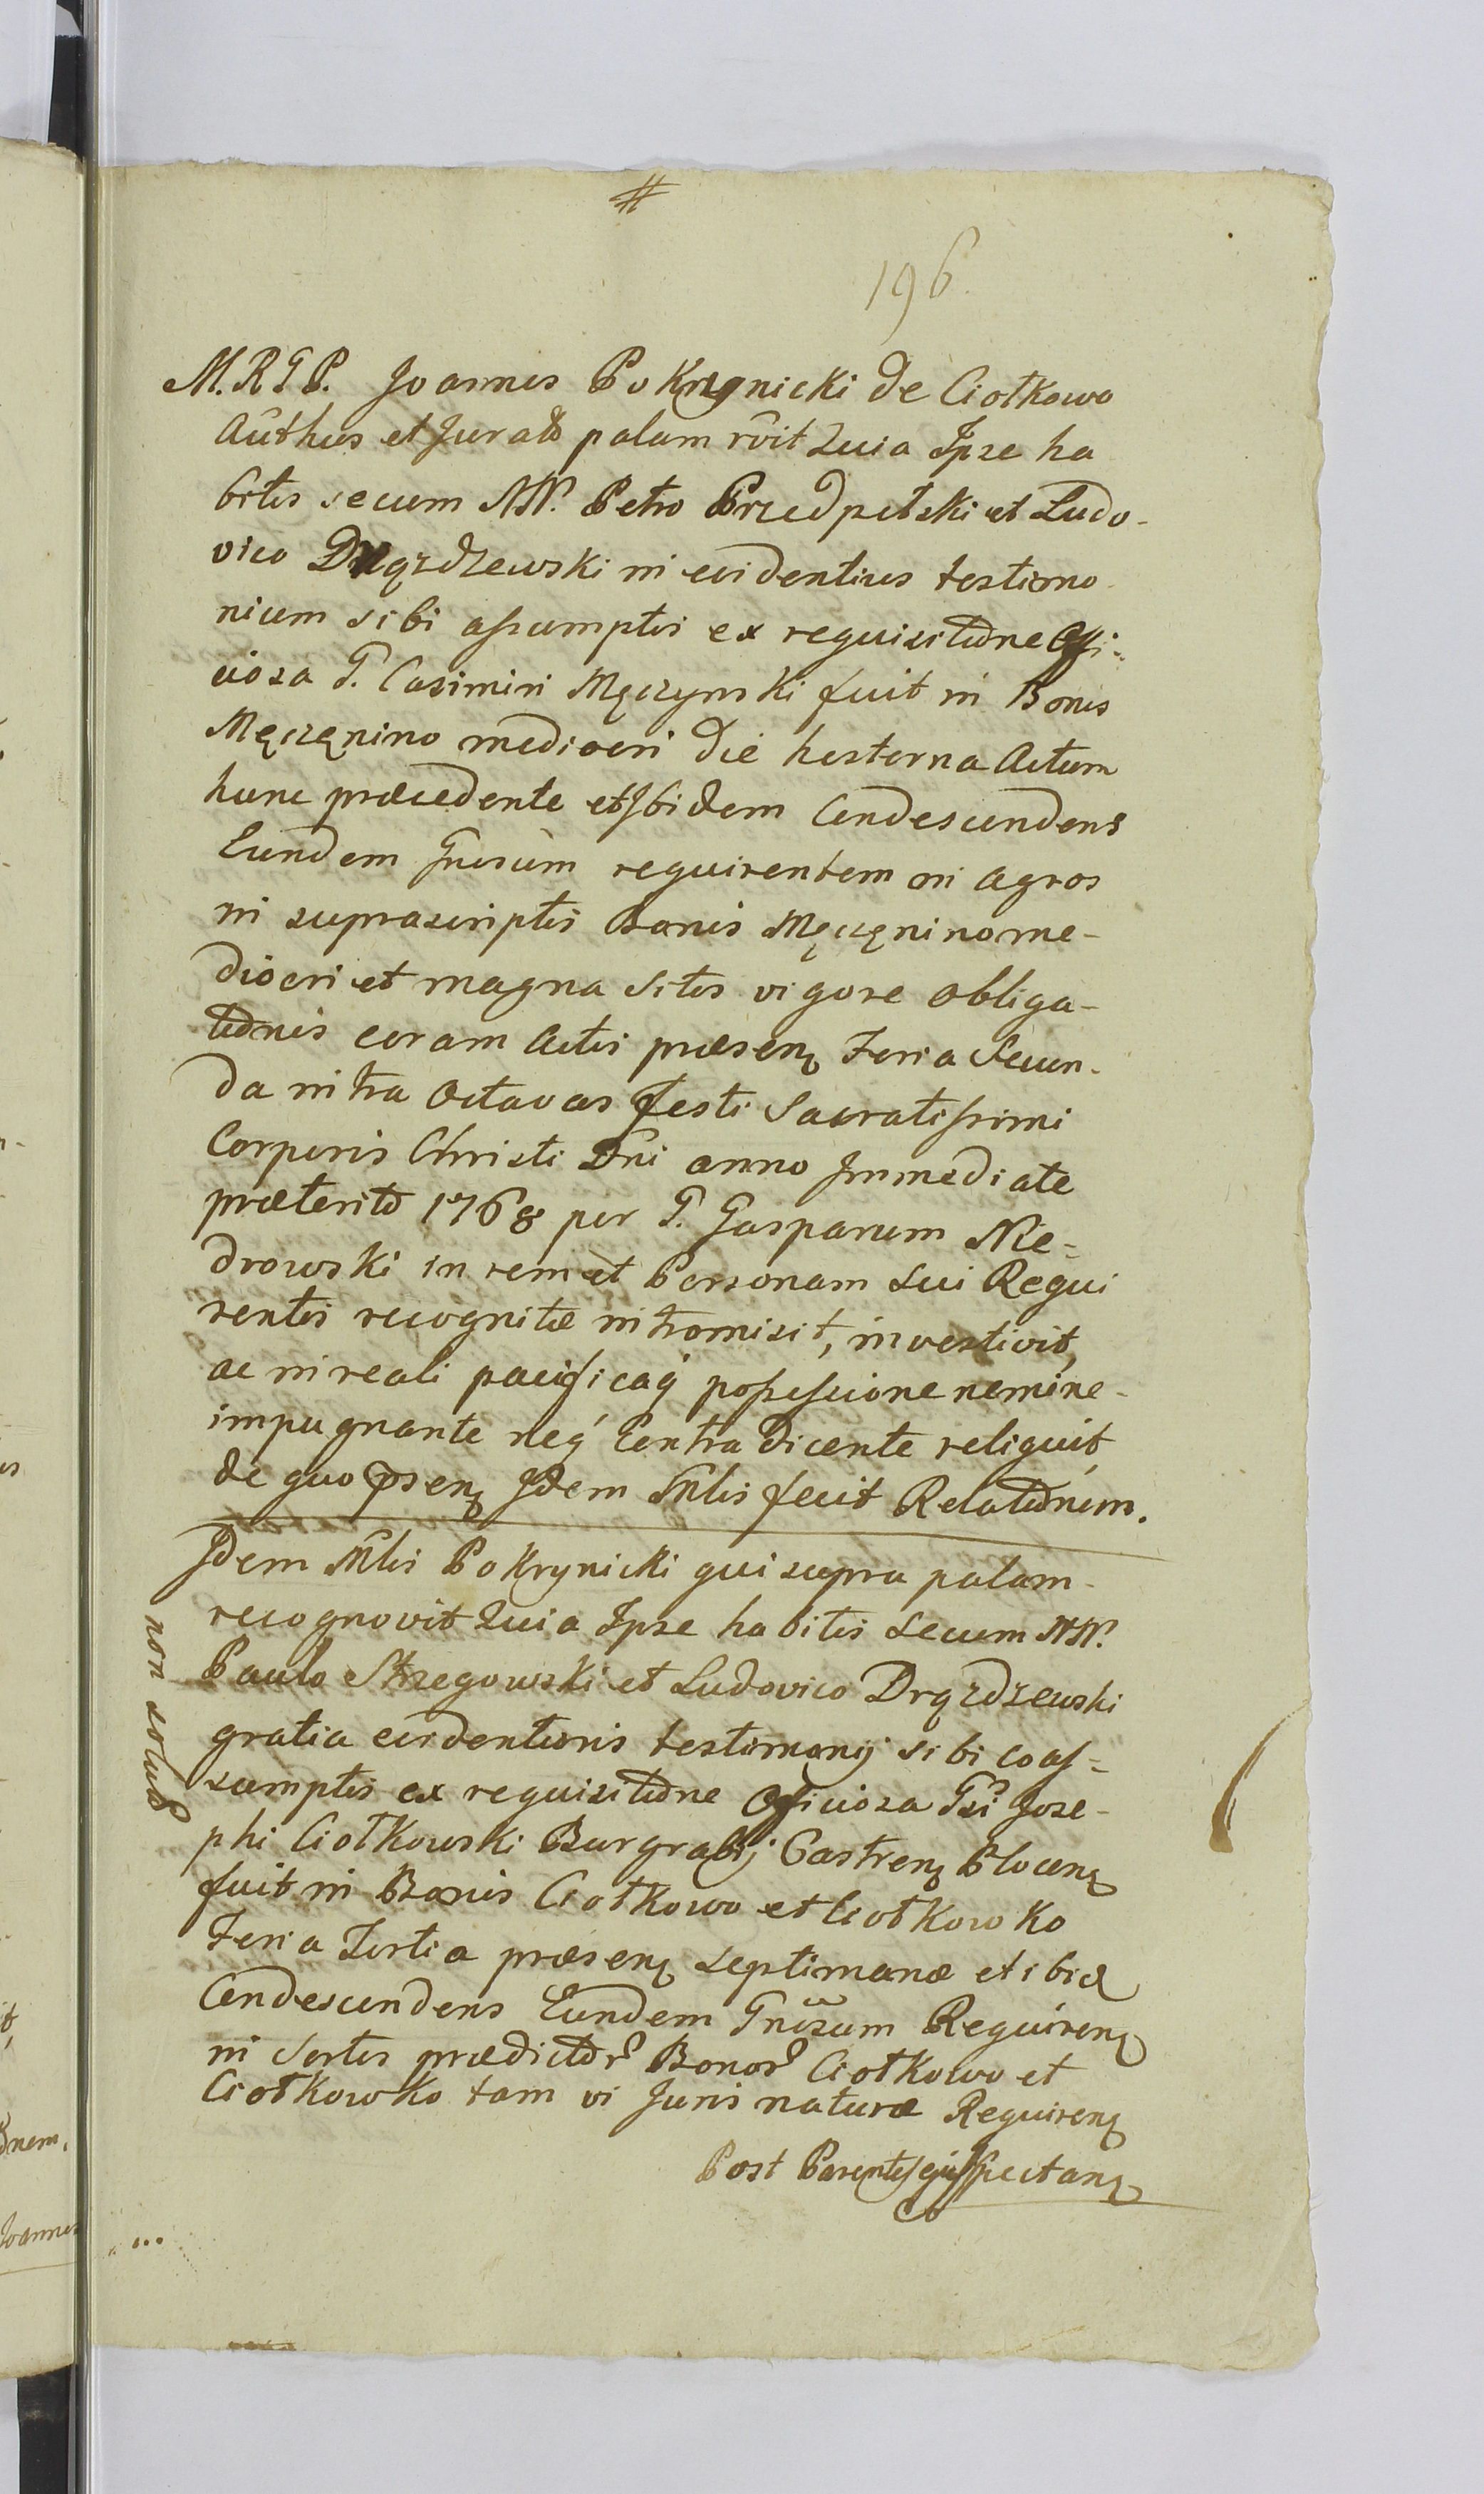 #
196.
M.R.G.P. Joannes Pokrzynicki de Ciołkowo
Authus et Jurato palam rōit Quia Ipse ha
bitis secum NN. Petro Przedpełski et Ludo-
vico Drązdzewski in evidentius testimo-
nium sibi assumptis ex requisitōne Offi-
ciosa G. Casimiri Męczynski fuit in Bonis
Męczęnino mediocri die hesterna Actum
hunc præcedente et Ibidem Condescendens
Eundem Gnosum requirentem in Agros
in suprascriptis Bonis Męczęnino me-
diocri et magna sitos vigore obliga-
tōnis coram Actis præsenę Feria Secun-
da intra Octavas Festi Sacratissimi
Corporis Christi Dni anno Immediate
præterito 1768 per G. Gasparum Nie-
drowski in rem et Personam sui Requi
rentis recognitæ intromisit, investivit,
ac in reali pacificaq possessione nemine-
impugnante neq Contradicente reliquit
de quo psenę Idem Mlis fecit Relatōnem.
Idem Mlis Pokrzynicki qui supra palam-
recognovit Quia Ipse habitis secum NN.
Paulo Strzegowski et Ludovico Drązdzewski
gratia evidentioris testimonij sibi coas-
sumptis ex requisitōne Officiosa Gsi Jose-
phi Ciołkowski Burgrabij Castrenę Plocenę
fuit in Bonis Ciołkowo et Ciołkowko
Feria Tertia præsenę septimanæ et ibid
Condescendens Eundem Gnosum Requirenę
in Sortes prædictor Bonor Ciołkowo et
Ciołkowko tam vi Juris naturæ Requirenę
Post Parentes ejus spectanę
non solus